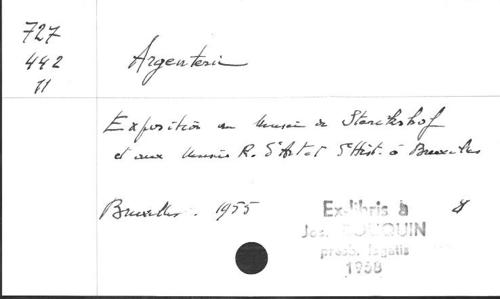 727
442
11
Argenterie
Exposition au Musée de Sterckshof
et aux Musées R. d'Art et d'Hist. à Bruxelles
Bruxelles. 1955
Ex-libris à
Jos. BOUQUIN
presb. legatis
1958